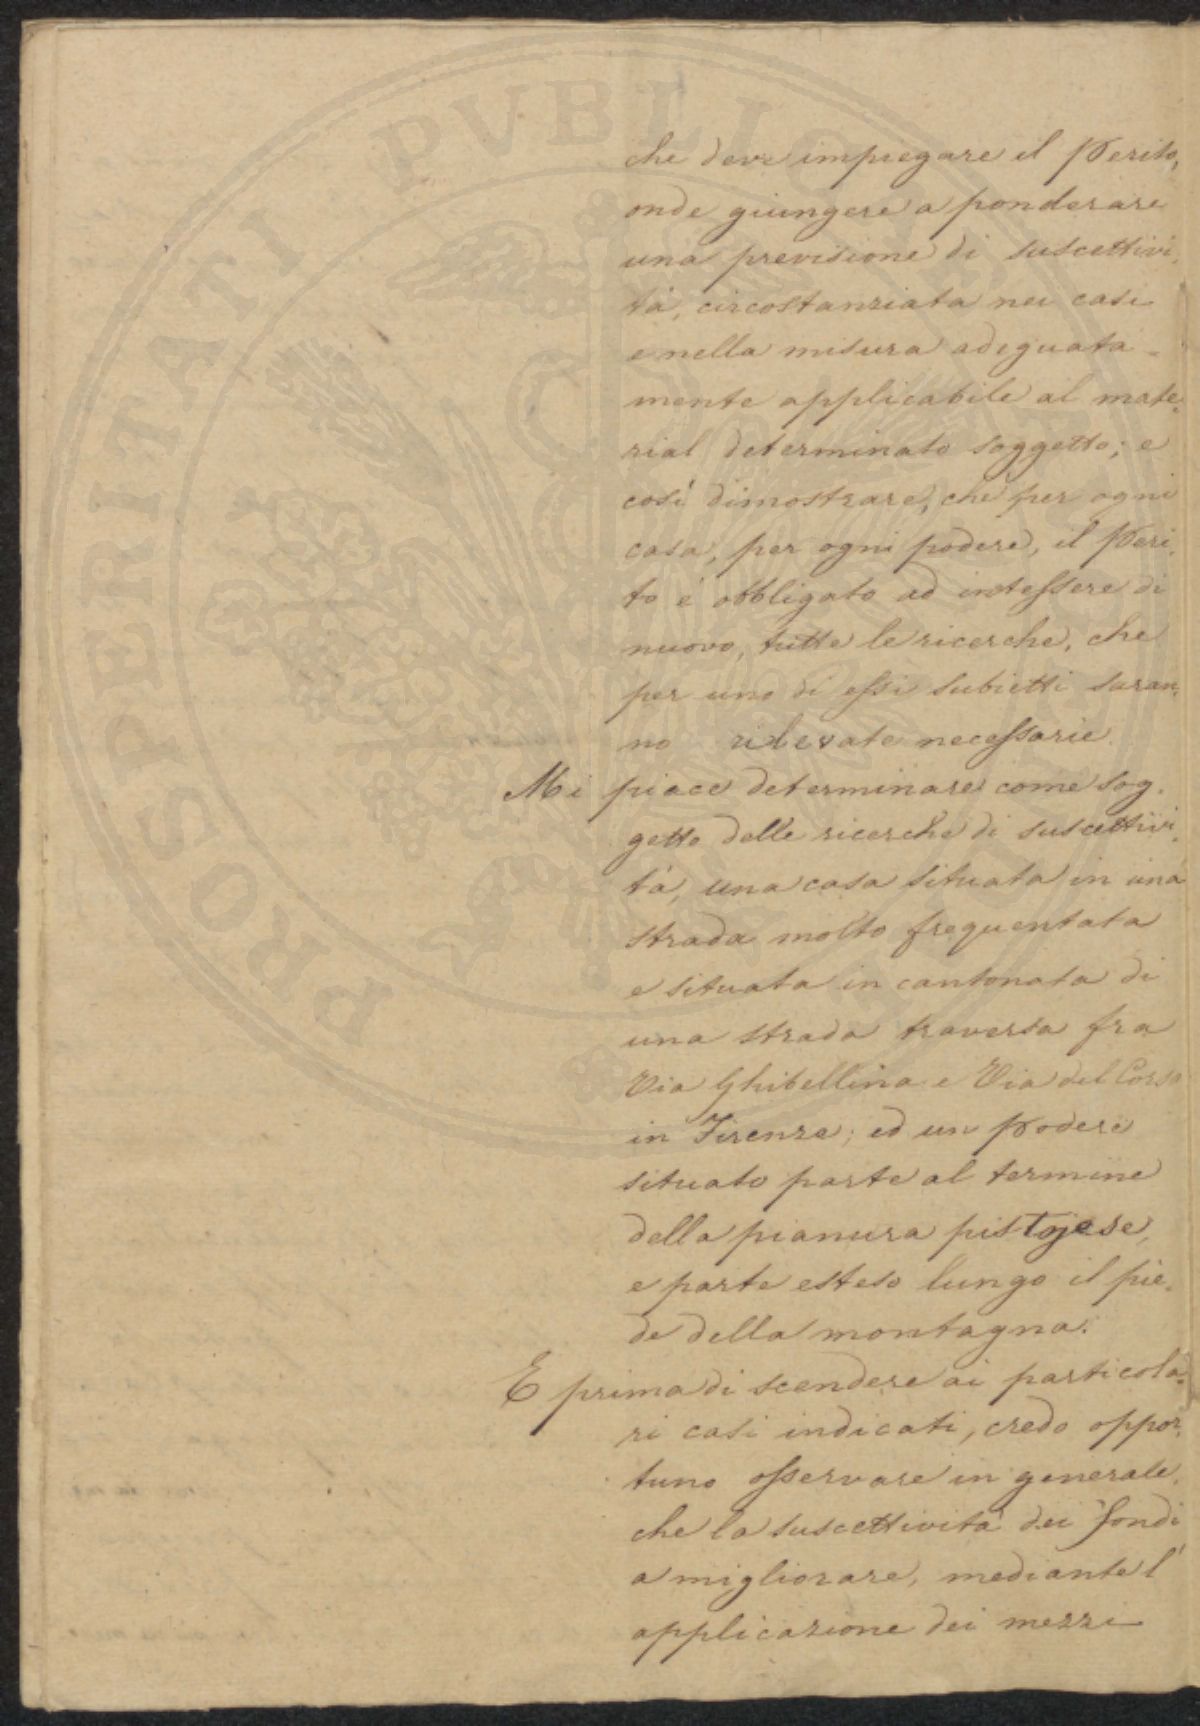 che deve impiegare il Perito,
onde giungere a ponderare
una previsione di suscettivi,
tà, circostanziata nei casi
e nella misura adeguata =
mente applicabile al mate,
rial determinato soggetto; e
così dimostrare, che per ogni
casa, per ogni podere, il Peri,
to è obbligato ad intessere di
nuovo, tutte le ricerche, che
per uno di essi subietti saran,
no rilevate necessarie.
Mi piace determinare come sog,
getto delle ricerche di suscettivi,
tà, una casa situata in una
strada molto frequentata
e situata in cantonata di
una strada traversa fra
Via Ghibellina e Via del Corso
in Firenze; ed un podere
situato parte al termine
della pianura pistojese,
e parte esteso lungo il pie,
de della montagna.
E prima di scendere ai particola,
ri casi indicati, credo oppor,
tuno osservare in generale,
che la suscettività dei fondi
a migliorare, mediante l'
applicazione dei mezzi
PROSPERITATI PVBLICAE